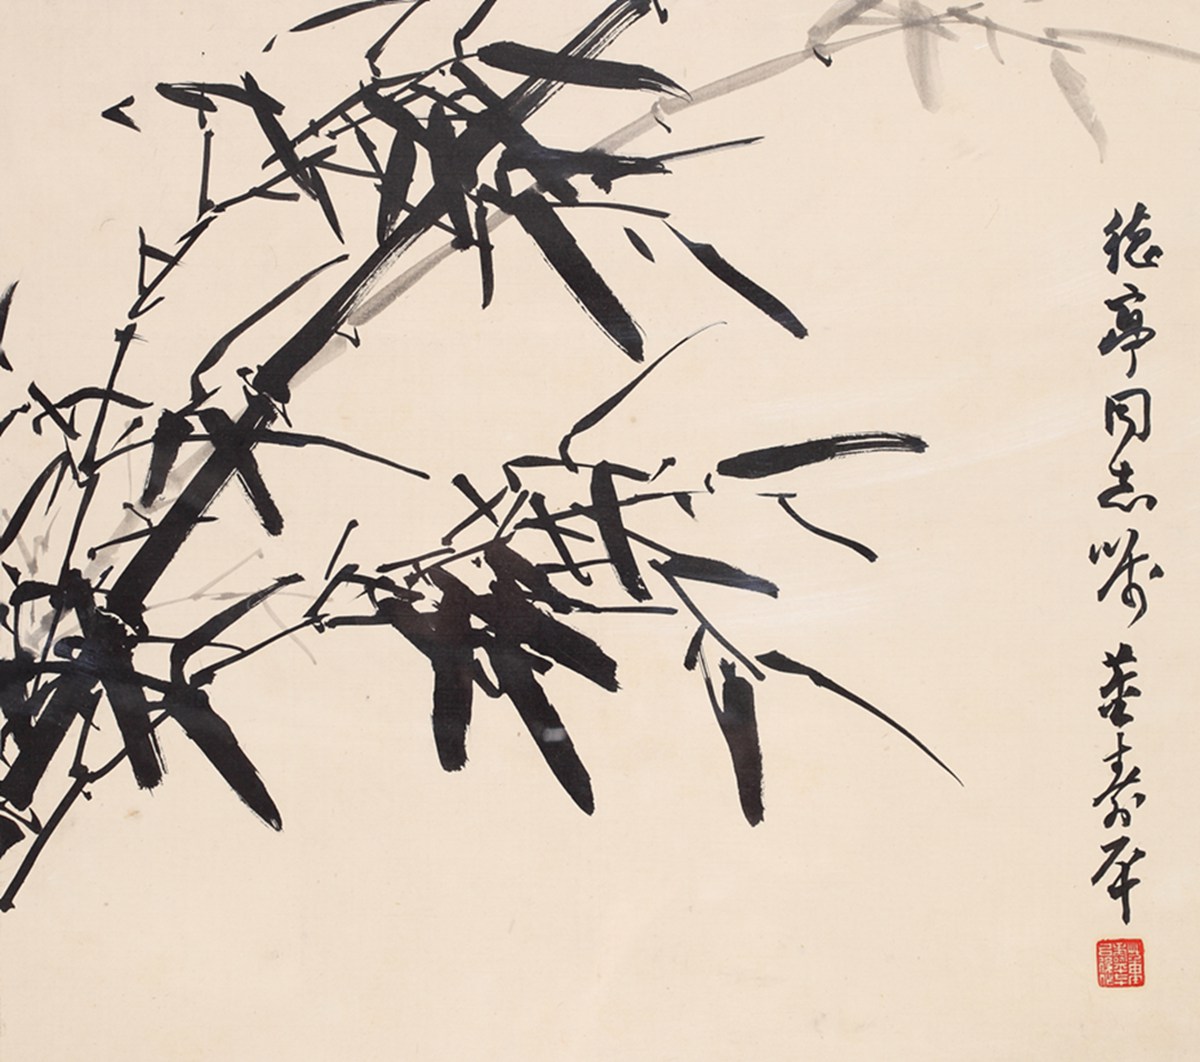 德亭同志嘱董寿平